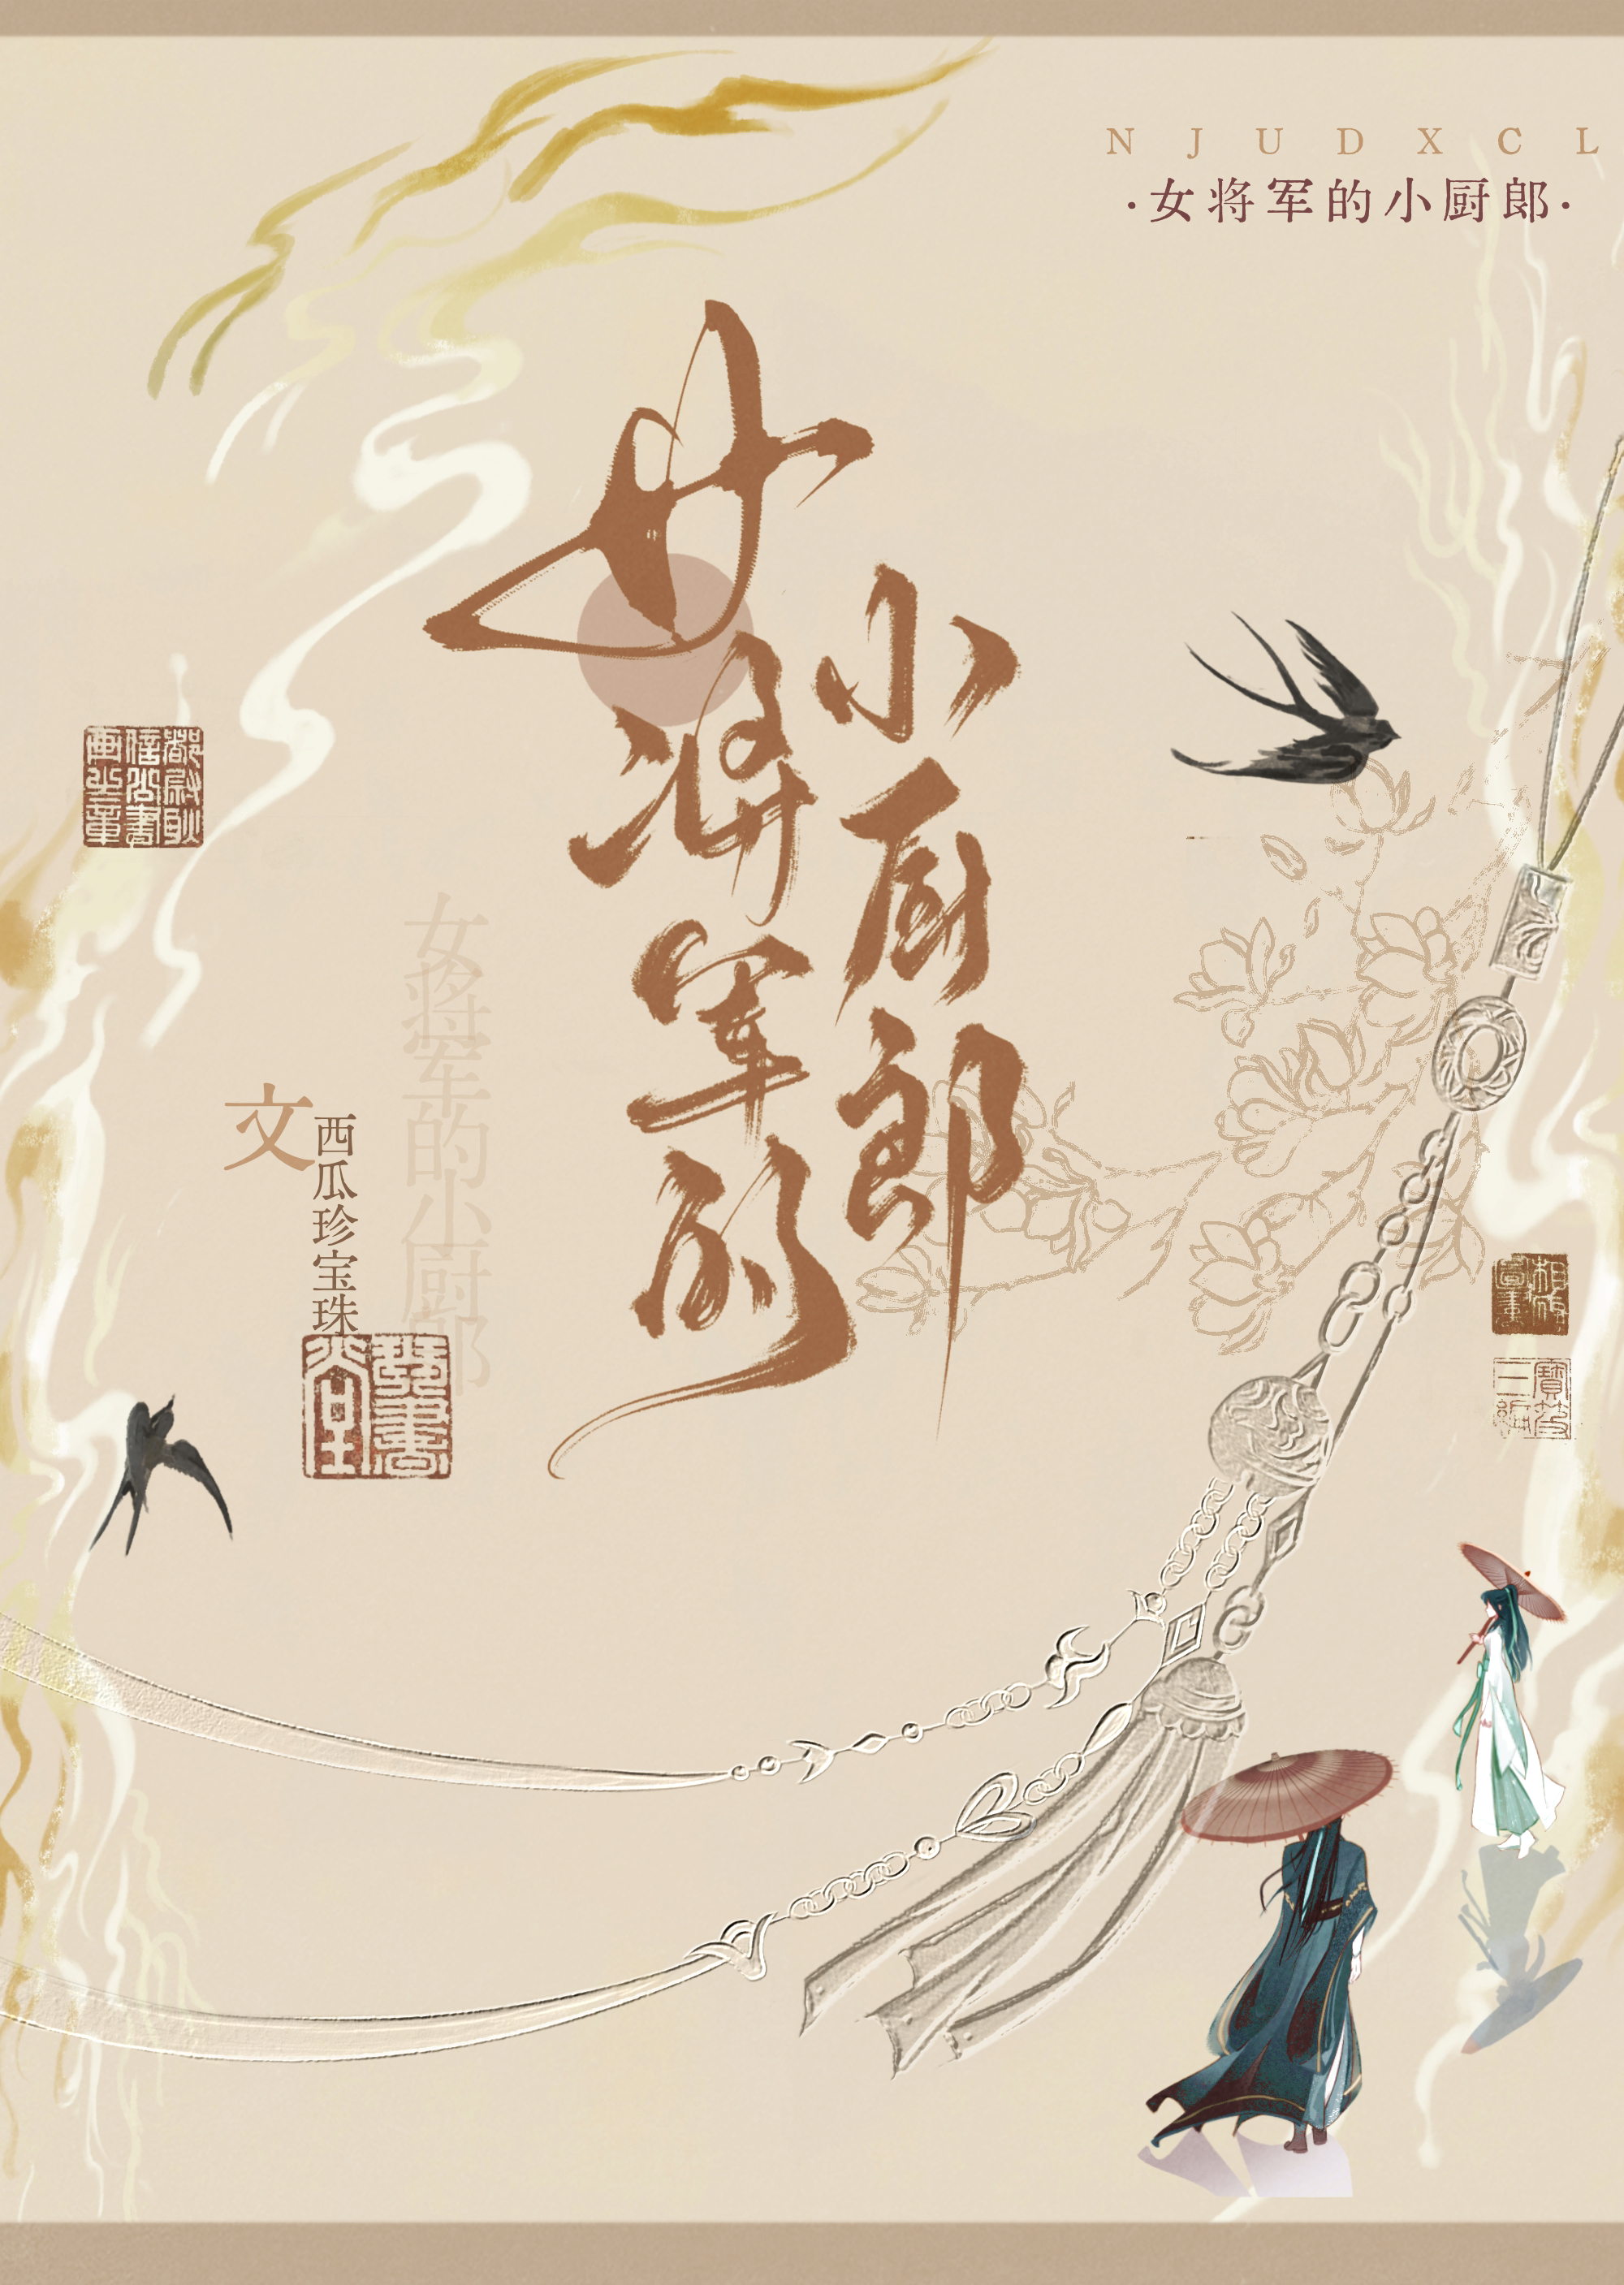 NJUDXCL
·女将军的小厨郎·
女将军的
小厨郎
女将军的小厨郎
文
西瓜珍宝珠